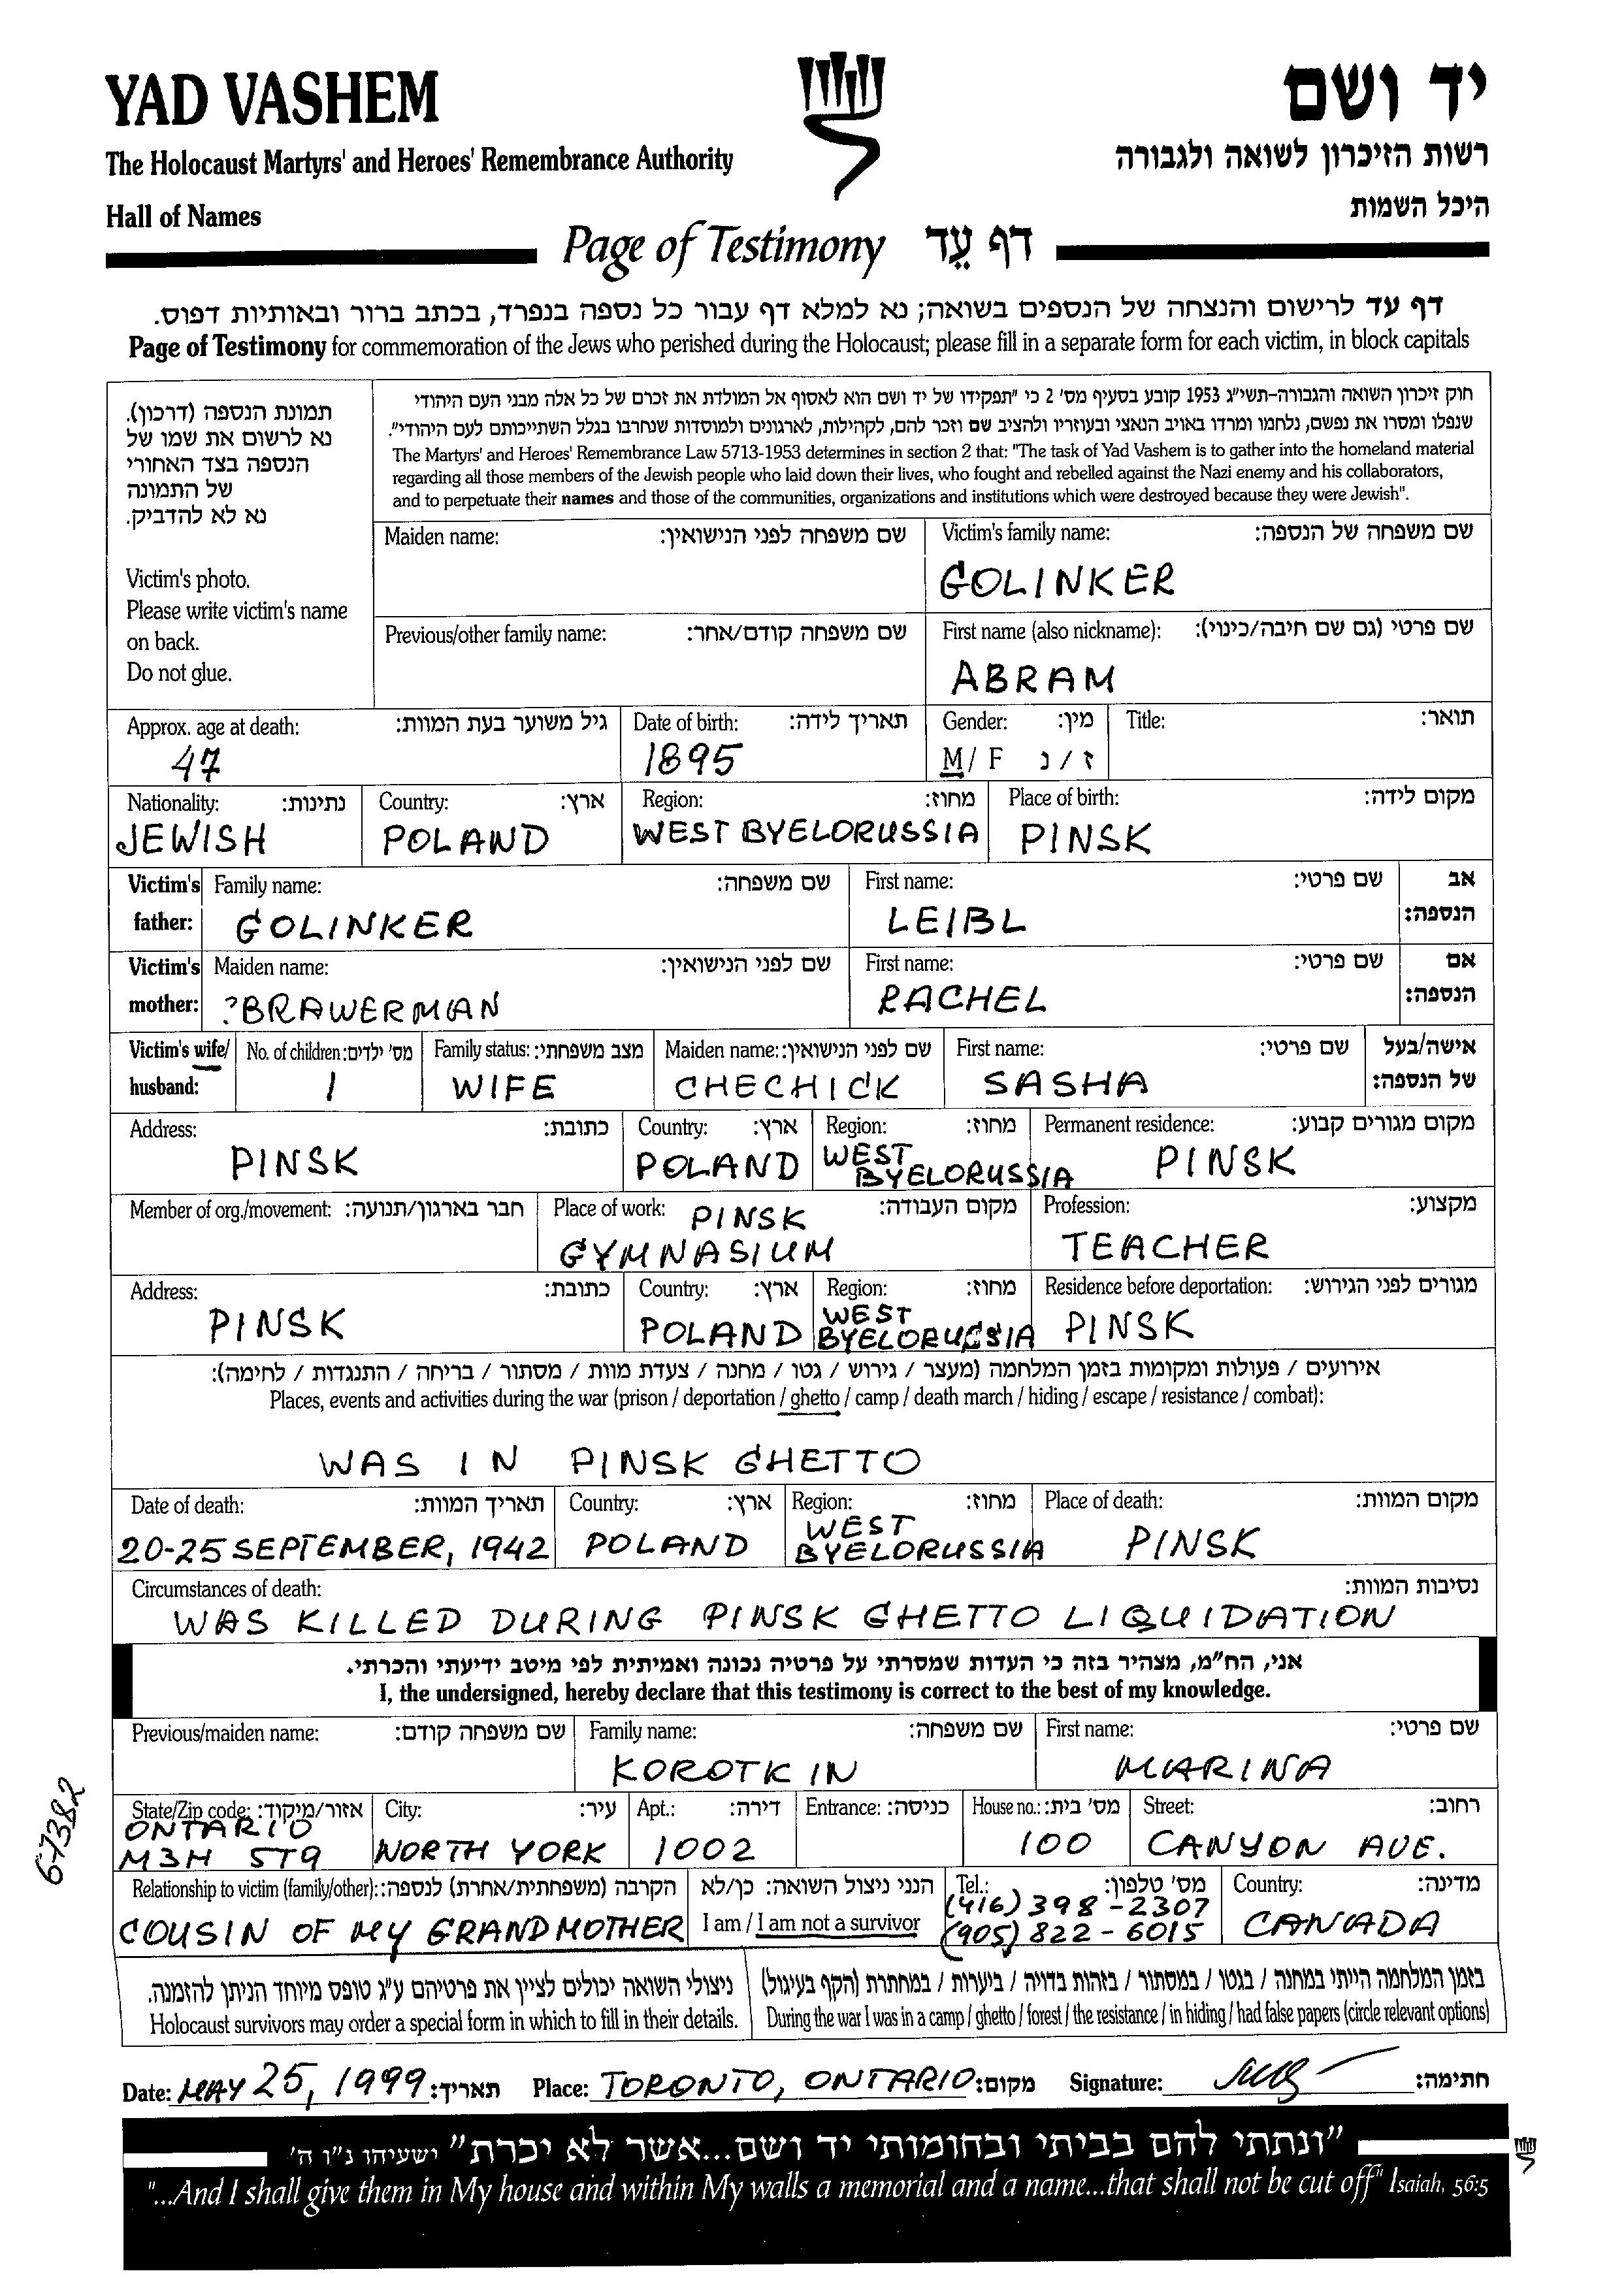 YAD VASHEM
יד ושם
The Holocaust Martyrs' and Heroes' Remembrance Authority
רשות הזיכרון לשואה ולגבורה
Hall of Names
היכל השמות
Page of Testimony דף עֵד
דף עד לרישום והנצחה של הנספים בשואה; נא למלא דף עבור כל נספה בנפרד, בכתב ברור ובאותיות דפוס.
Page of Testimony for commemoration of the Jews who perished during the Holocaust; please fill in a separate form for each victim, in block capitals
תמונת הנספה (דרכון).
נא לרשום את שמו של
הנספה בצד האחורי
של התמונה
נא לא להדביק.
Victim's photo.
Please write victim's name
on back.
Do not glue.
חוק זיכרון השואה והגבורה-תשי"ג 1953 קובע בסעיף מס' 2 כי "תפקידו של יד ושם הוא לאסוף אל המולדת את זכרם של כל אלה מבני העם היהודי
שנפלו ומסרו את נפשם, נלחמו ומרדו באויב הנאצי ובעוזריו ולהציב שם וזכר להם, לקהילות, לארגונים ולמוסדות שנחרבו בגלל השתייכותם לעם היהודי".
The Martyrs' and Heroes' Remembrance Law 5713-1953 determines in section 2 that: "The task of Yad Vashem is to gather into the homeland material
regarding all those members of the Jewish people who laid down their lives, who fought and rebelled against the Nazi enemy and his collaborators,
and to perpetuate their names and those of the communities, organizations and institutions which were destroyed because they were Jewish".
Maiden name: שם משפחה לפני הנישואין: Victim's family name: שם משפחה של הנספה:
GOLINKER
Previous/other family name: שם משפחה קודם/אחר: First name (also nickname): שם פרטי (גם שם חיבה/כינוי):
ABRAM
Approx. age at death: גיל משוער בעת המוות: Date of birth: תאריך לידה: Gender: מין: Title: תואר:
47 1895 M/ F ז / נ
Nationality: נתינות: Country: ארץ: Region: מחוז: Place of birth: מקום לידה:
JEWISH POLAND WEST BYELORUSSIA PINSK
Victim's Family name: שם משפחה: First name: שם פרטי: אב
father: GOLINKER LEIBL הנספה:
Victim's Maiden name: שם לפני הנישואין: First name: שם פרטי: אם
mother: ?BRAWERMAN RACHEL הנספה:
Victim's wife/ No. of children: מס' ילדים: Family status: מצב משפחתי: Maiden name: שם לפני הנישואין: First name: שם פרטי: אישה/בעל
husband: 1 WIFE CHECHICK SASHA של הנספה:
Address: כתובת: Country: ארץ: Region: מחוז: Permanent residence: מקום מגורים קבוע:
PINSK POLAND WEST BYELORUSSIA PINSK
Member of org./movement: חבר בארגון/תנועה: Place of work: PINSK מקום העבודה: Profession: מקצוע:
GYMNASIUM TEACHER
Address: כתובת: Country: ארץ: Region: מחוז: Residence before deportation: מגורים לפני הגירוש:
PINSK POLAND WEST BYELORUSSIA PINSK
אירועים / פעולות ומקומות בזמן המלחמה (מעצר / גירוש / גטו / מחנה / צעדת מוות / מסתור / בריחה / התנגדות / לחימה):
Places, events and activities during the war (prison / deportation / ghetto / camp / death march / hiding / escape / resistance / combat):
WAS IN PINSK GHETTO
Date of death: תאריך המוות: Country: ארץ: Region: מחוז: Place of death: מקום המוות:
20-25 SEPTEMBER, 1942 POLAND WEST BYELORUSSIA PINSK
Circumstances of death: נסיבות המוות:
WAS KILLED DURING PINSK GHETTO LIQUIDATION
אני, הח"מ, מצהיר בזה כי העדות שמסרתי על פרטיה נכונה ואמיתית לפי מיטב ידיעתי והכרתי.
I, the undersigned, hereby declare that this testimony is correct to the best of my knowledge.
Previous/maiden name: שם משפחה קודם: Family name: שם משפחה: First name: שם פרטי:
KOROTKIN MARINA
State/Zip code: אזור/מיקוד: City: עיר: Apt.: דירה: Entrance: כניסה: House no.: מס' בית: Street: רחוב:
ONTARIO
M3H 5T9 NORTH YORK 1002 100 CANYON AVE.
67382
Relationship to victim (family/other): הקרבה (משפחתית/אחרת) לנספה: הנני ניצול השואה: כן/לא Tel.: מס' טלפון: Country: מדינה:
COUSIN OF MY GRANDMOTHER I am / I am not a survivor (416) 398-2307 CANADA
(905) 822-6015
ניצולי השואה יכולים לציין את פרטיהם ע"ג טופס מיוחד הניתן להזמנה. בזמן המלחמה הייתי במחנה / בגטו / במסתור / בזהות בדויה / ביערות / במחתרת (הקף בעיגול)
Holocaust survivors may order a special form in which to fill in their details. During the war I was in a camp / ghetto / forest / the resistance / in hiding / had false papers (circle relevant options)
Date: MAY 25, 1999 תאריך: Place: TORONTO, ONTARIO מקום: Signature: חתימה:
"ונתתי להם בביתי ובחומותי יד ושם...אשר לא יכרת" ישעיהו נ"ו ה'
"...And I shall give them in My house and within My walls a memorial and a name...that shall not be cut off" Isaiah, 56:5